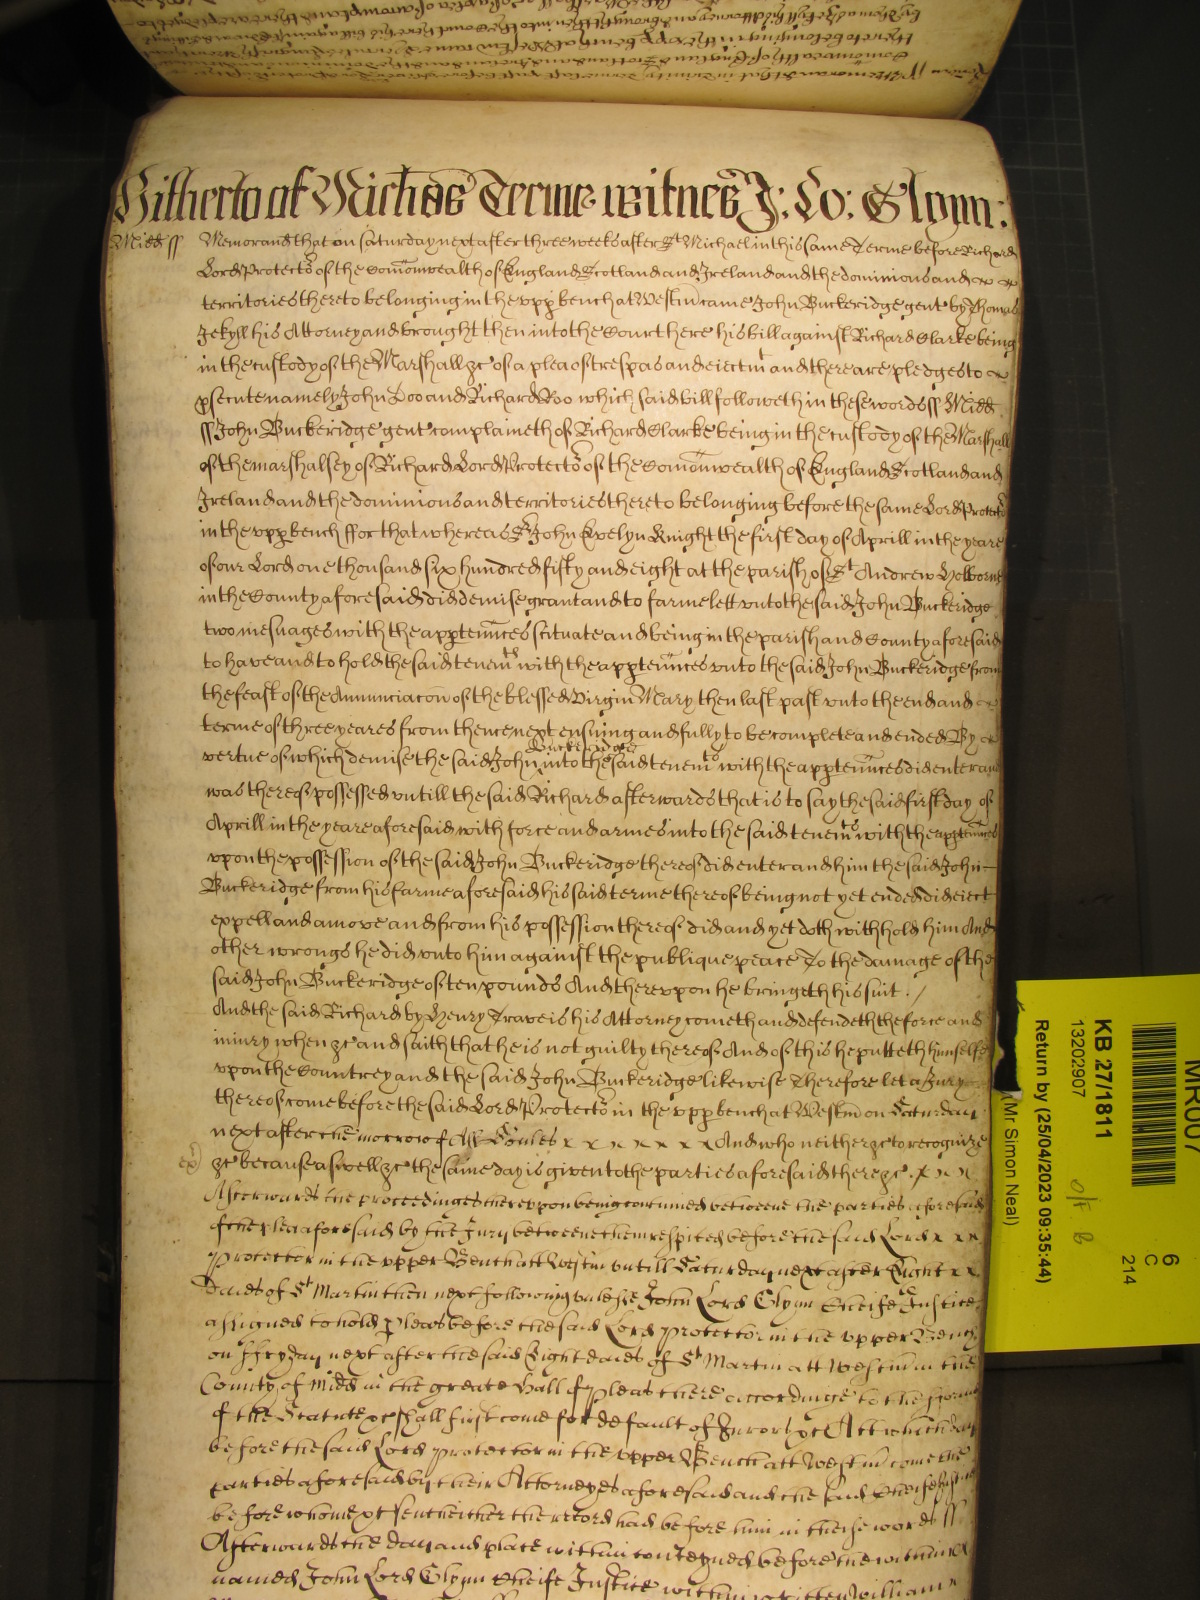 Hitherto of Michas Terme witnes J: Lo: Glynn:
Midd ss Memorand that on Saturday next after three weekes after St Michael in this same Terme before Richard
Lord Protector of the Comonwealth of England Scotland and Ireland and the dominions and
territories thereto belonging in the upp bench at Westm came John Buckeridge gent by Thomas
Jekyll his Attorney and brought then into the Court here his bill against Richard Clarke being
in the custody of the Marshall &c of a plea of trespas and eiectmt and there are pledges to
psecute namely John Doo and Richard Roo which said bill followeth in these words ss Midd
ss John Buckeridge gent complaineth of Richard Clarke being in the custody of the Marshall
of the marshalsey of Richard Lord Protector of the Comonwealth of England Scotland and
Ireland and the dominions and territories thereto belonging before the same Lord Protector
in the upp bench ffor that whereas Sr John Evelyn Knight the first day of Aprill in the yeare
of our Lord one thousand six hundred fifty and eight at the parish of St Andrew Holborne
in the County aforesaid did demise grant and to farme lett unto the said John Buckeridge
two mesuages with the apptennces scituate and being in the parish and County aforesaid
to have and to hold the said tenemts with the apptennces unto the said John Buckeridge from
the feast of the Annunciacon of the blessed Virgin Mary then last past unto the end and
terme of three yeares from thence next ensuing and fully to be complete and ended By
vertue of which demise the said John Buckeridge into the said tenemts with the apptennces did enter and
was thereof possessed untill the said Richard afterwards that is to say the said first day of
Aprill in the yeare aforesaid with force and armes into the said tenemts with the apptennces
upon the possession of the said John Buckeridge thereof did enter and him the said John
Buckeridge from his farme aforesaid his said terme thereof being not yet ended did eiect
expell and amove and from his possession thereof did and yet doth withhold him And
other wrongs he did unto him against the publique peace To the damage of the
said John Buckeridge of ten pounds And thereupon he bringeth his suit ./
And the said Richard by Henry Traveis his Attorney cometh and defendeth the force and
iniury when &c and saith that he is not guilty thereof And of this he putteth himselfe
upon the Countrey and the said John Buckeridge likewise Therefore let a Jury
thereof come before the said Lord Protector in the upp bench at Westm on Saturday
next after the morrow of All Soules x x x x x x x And who neither &c to recognize
&c because aswell &c the same day is given to the parties aforesaid there &c . x x x
Afterwards the proceedinges thereupon being continued betweene the parties aforesaid
of the plea aforesaid by the Jury betweene them respited before the said Lord x x x
Protector in the upper Bench att Westm untill Saturday next after Eight x x
daies of St Martin then next following unlesse John Lord Glynn Cheife Justice
assigned to hold pleas before the said Lord Protector in the upper Bench
on ffryday next after the said Eight daies of St Martin att Westm in the
County of Midd in the greate Hall of Pleas there accordinge to the forme
of the Statute &c shall first come for default of Jurors &c Att which day
before the said Lord Protector in the upper Bench att Westm come the
parties aforesaid by their Attorneyes aforesaid and the said Cheife Justice
before whome &c sent hither the record had before him in these words ss
Afterwards the day and place within conteyned before the within
named John Lord Glynn Cheife Justice within written William
MR007
6
C
214
KB 27/1811
13202907
Return by (25/04/2023 09:35:44)
(Mr Simon Neal)